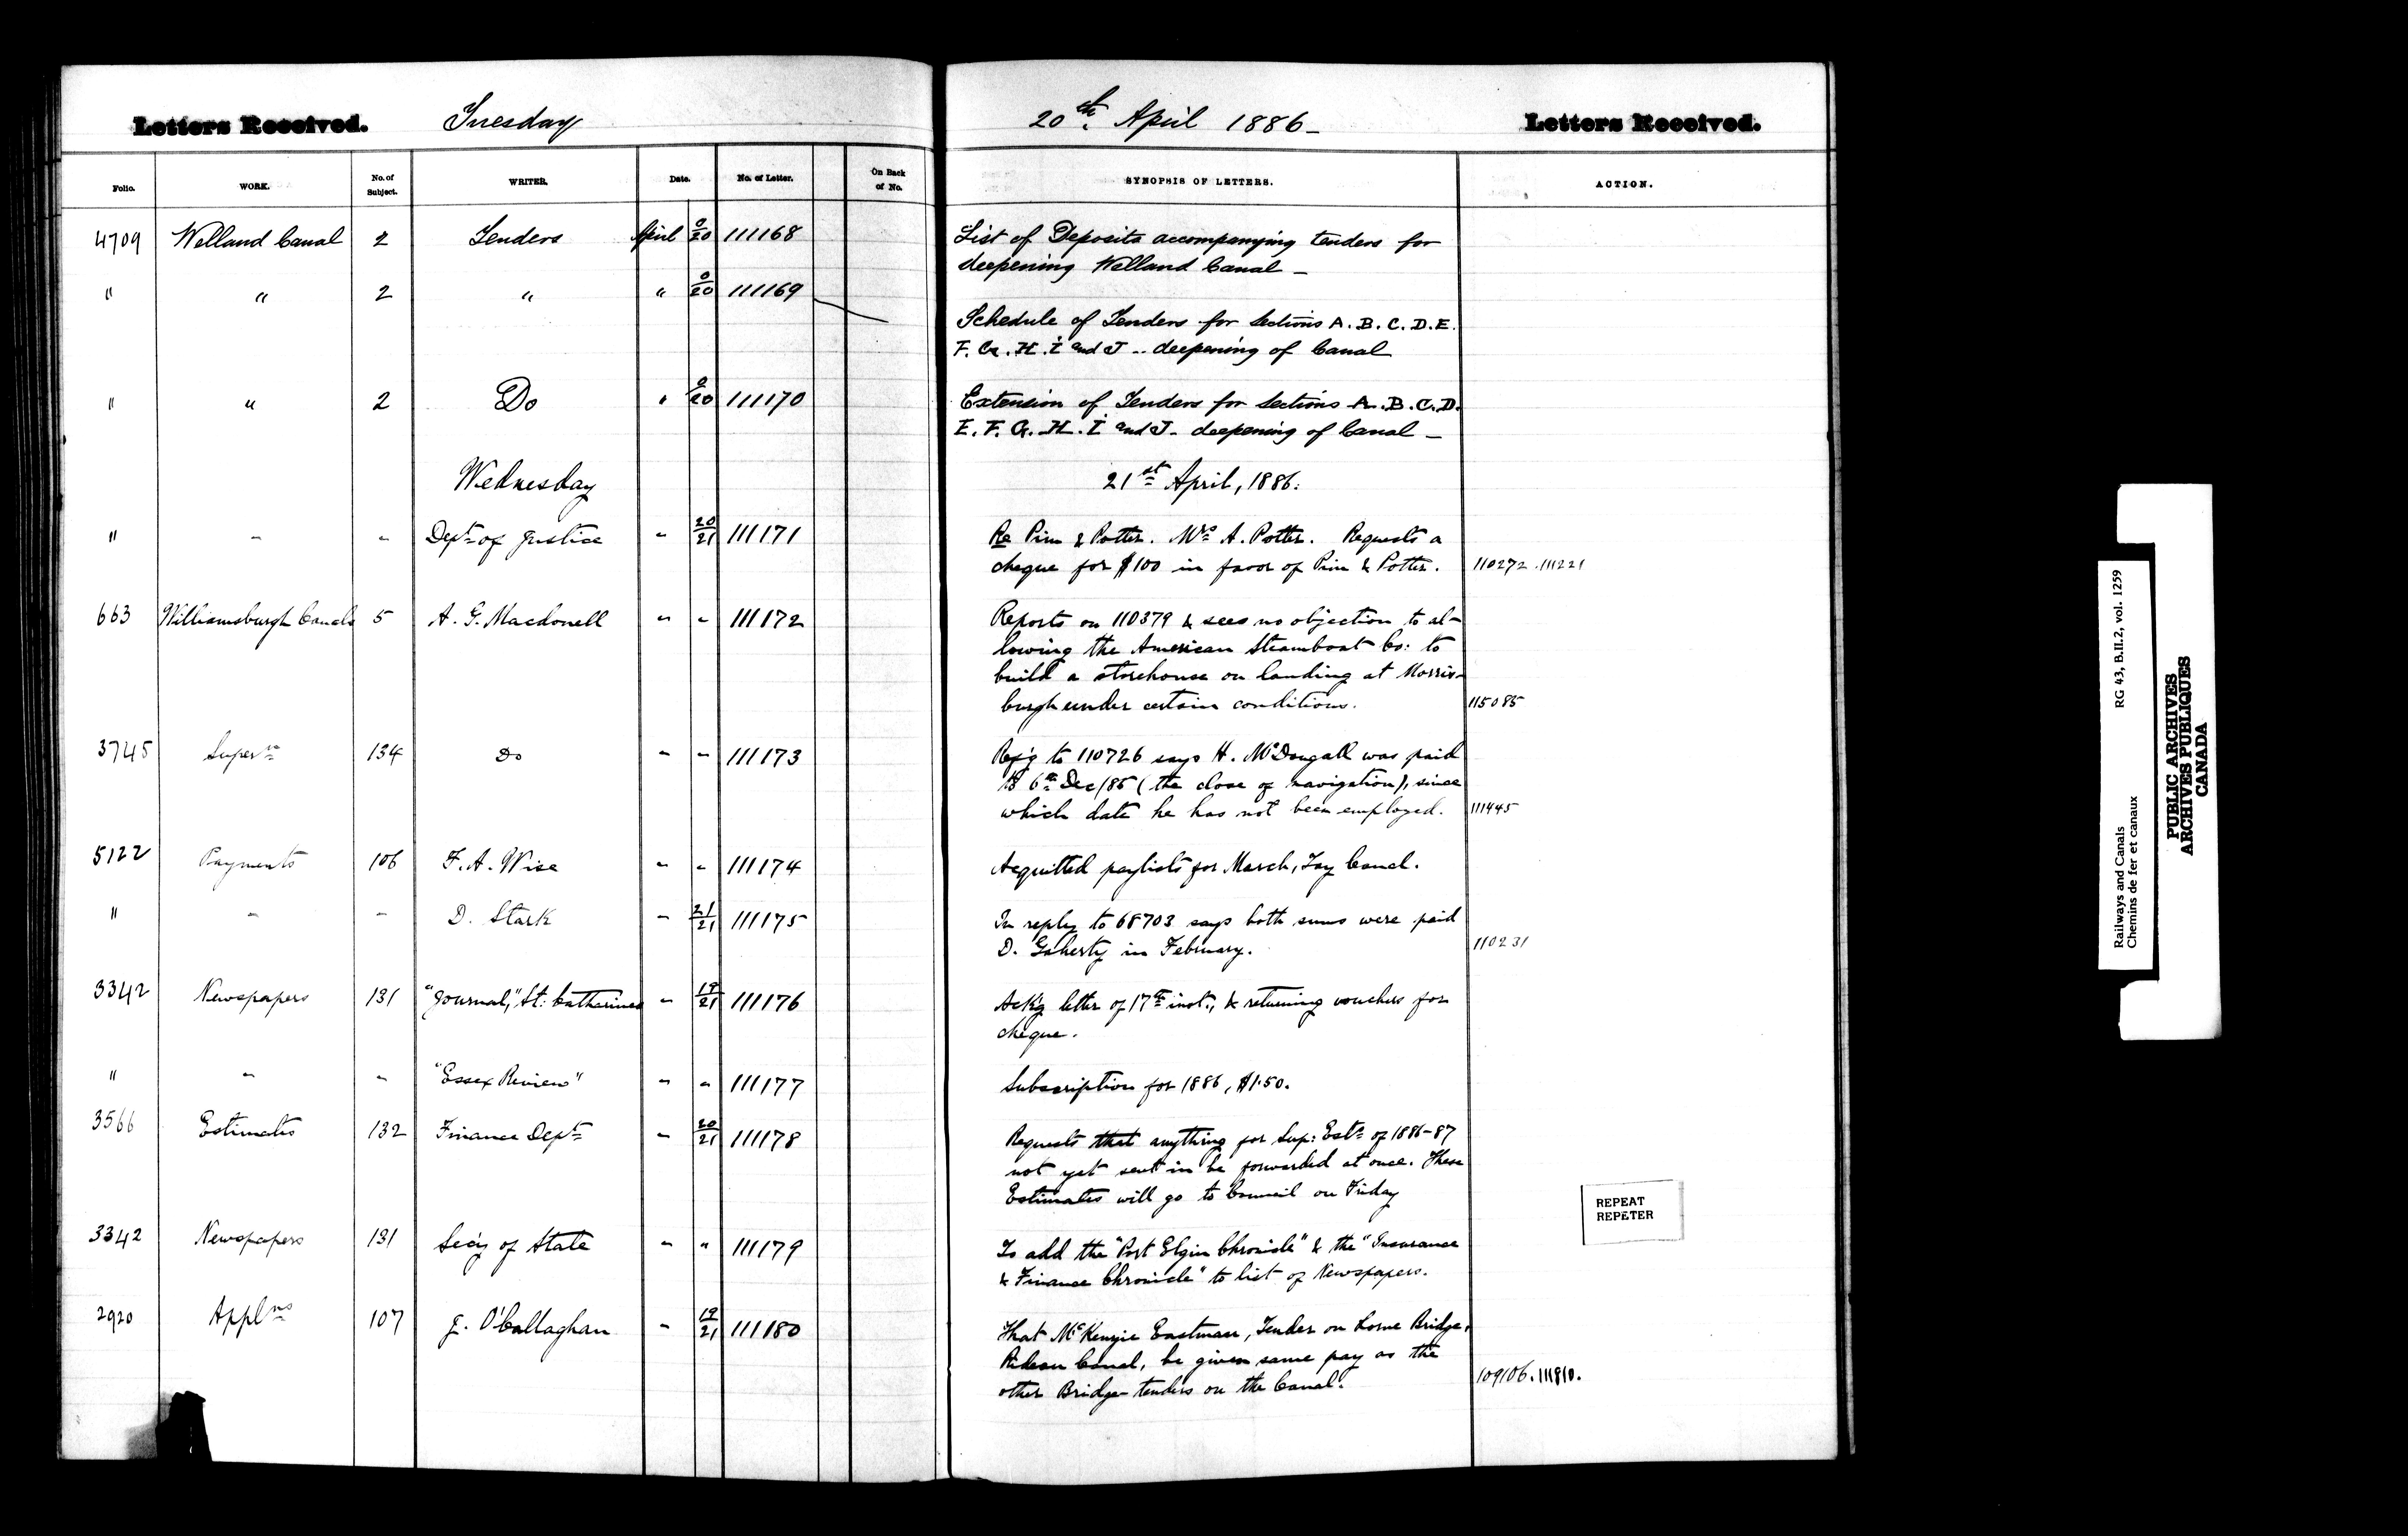 Letters Received. Tuesday 20th April 1886 – Letters Received.
Folio. WORK. No. of Subject. WRITER. Date. No. of Letter. On Back of No. SYNOPSIS OF LETTERS. ACTION.
4709 Welland Canal 2 Tenders April 0/20 111168 List of Deposits accompanying tenders for
deepening Welland Canal –
" " 2 " " 0/20 111169
Schedule of Tenders for Sections A. B. C. D. E.
F. G. H. I and J -- deepening of Canal
" " 2 Do " 0/20 111170 Extension of Tenders for Sections A. B. C. D.
E. F. G. H. I and J – deepening of Canal –
Wednesday 21st April, 1886.
" " " Dept of Justice " 20/21 111171 Re Pim & Potter. Mrs A. Potter. Requests a
cheque for $100 in favor of Pim & Potter. 110272 . 111221
663 Williamsburgh Canals 5 A. G. Macdonell " " 111172 Reports on 110379 & sees no objection to al-
lowing the American Steamboat Co: to
build a storehouse on landing at Morris-
burgh under certain conditions. 115085
3745 Supern 134 Do " " 111173 Ref'g to 110726 says H. McDougall was paid
to 6th Dec/85 (the close of navigation), since
which date he has not been employed. 111445
5122 Payments 106 F. A. Wise " " 111174 Acquitted paylists for March, Tay Canal.
" " " D. Stark " 21/21 111175 In reply to 68703 says both sums were paid
D. Goherty in February. 110231
3342 Newspapers 131 "Journal," St: Catharines " 19/21 111176 Ack'g letter of 17th inst., & returning vouchers for
cheque.
" " " "Essex Review" " " 111177 Subscription for 1886, $1.50.
3566 Estimates 132 Finance Dept " 20/21 111178 Requests that anything for Sup: Ests of 1886-87
not yet sent in be forwarded at once. These
Estimates will go to Council on Friday
3342 Newspapers 131 Sec'y of State " " 111179 To add the "Port Elgin Chronicle" & the "Insurance
& Finance Chronicle" to list of Newspapers.
2920 Applns 107 J. O'Callaghan " 19/21 111180 That McKenzie Eastman, Tender on Lorne Bridge,
Rideau Canal, be given same pay as the
other Bridge-tenders on the Canal. 109106 . 111810.
REPEAT
REPETER
Railways and Canals RG 43, B.II.2, vol. 1259
Chemins de fer et canaux
PUBLIC ARCHIVES
ARCHIVES PUBLIQUES
CANADA